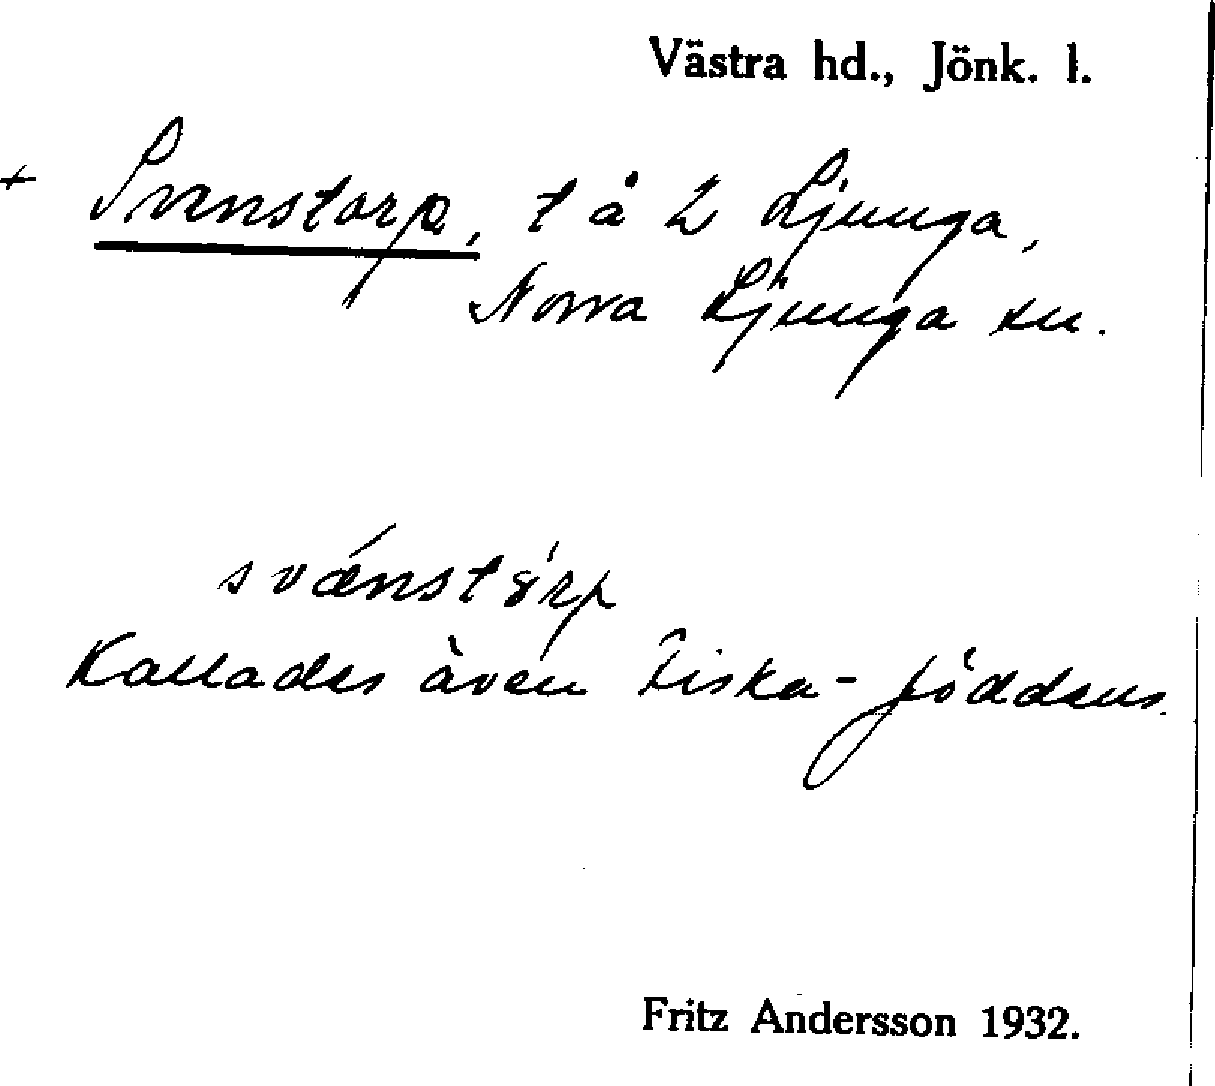 Västra hd., Jönk. l.
+ Svenstorp, t å 2 Ljunga,
Norra Ljunga sn.
svænstórp
Kallades även Fiska-jöddens.
Fritz Andersson 1932.